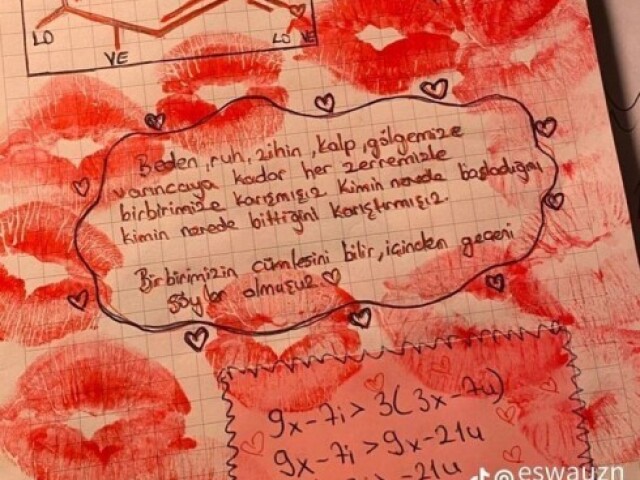 LO
VE
LO VE
Beden, ruh, zihin, kalp, gölgemize
varıncaya kadar her zerremizle
birbirimize karışmışız kimin nerede başladığını
kimin nerede bittiğini karıştırmışız.
Birbirimizin cümlesini bilir, içinden geçeni
söyler olmuşuz
9x-7i > 3(3x-7u)
9x-7i > 9x-21u
-21u
eswauzn